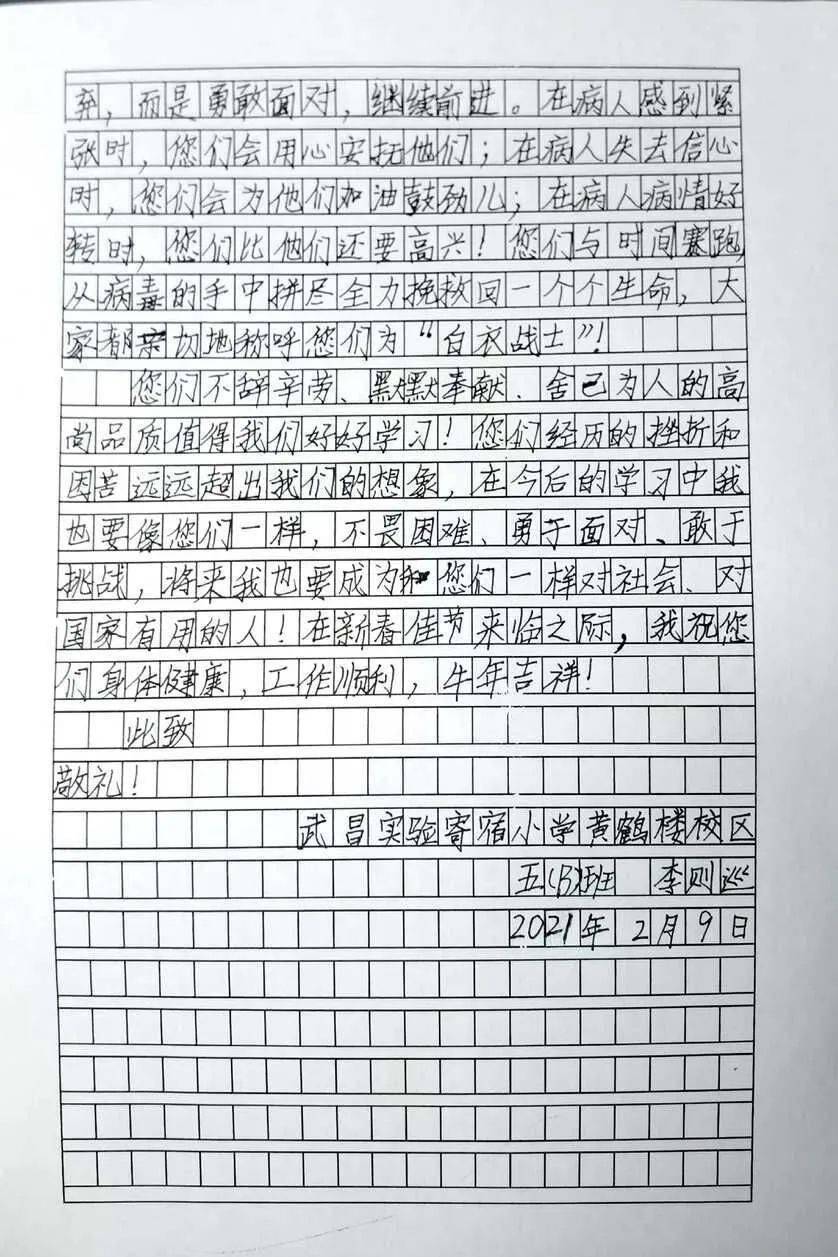 弃，而是勇敢面对，继续前进。在病人感到紧
张时，您们会用心安抚他们；在病人失去信心
时，您们会为他们加油鼓劲儿；在病人病情好
转时，您们比他们还要高兴！您们与时间赛跑，
从病毒的手中拼尽全力挽救回一个个生命，大
家都亲切地称呼您们为“白衣战士”！
您们不辞辛劳、默默奉献、舍己为人的高
尚品质值得我们好好学习！您们经历的挫折和
困苦远远超出我们的想象，在今后的学习中我
也要像您们一样，不畏困难、勇于面对、敢于
挑战，将来我也要成为和您们一样对社会、对
国家有用的人！在新春佳节来临之际，我祝您
们身体健康，工作顺利，牛年吉祥！
此致
敬礼！
武昌实验寄宿小学黄鹤楼校区
五（13）班 李则巡
2021年2月9日